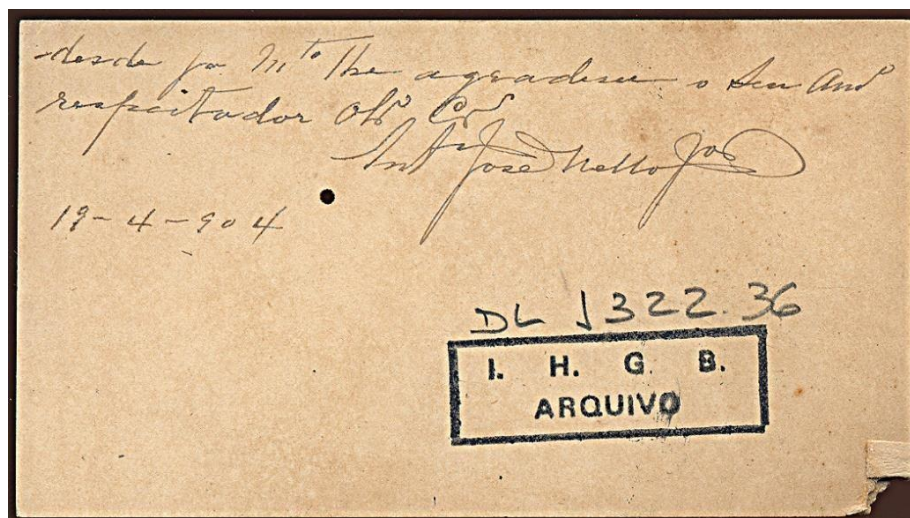 desde ja Mto lhe agradece o seu Amo
respeitador Obo Cro
Anto José Netto Jor
19-4-904
DL 1322.36
I. H. G. B.
ARQUIVO